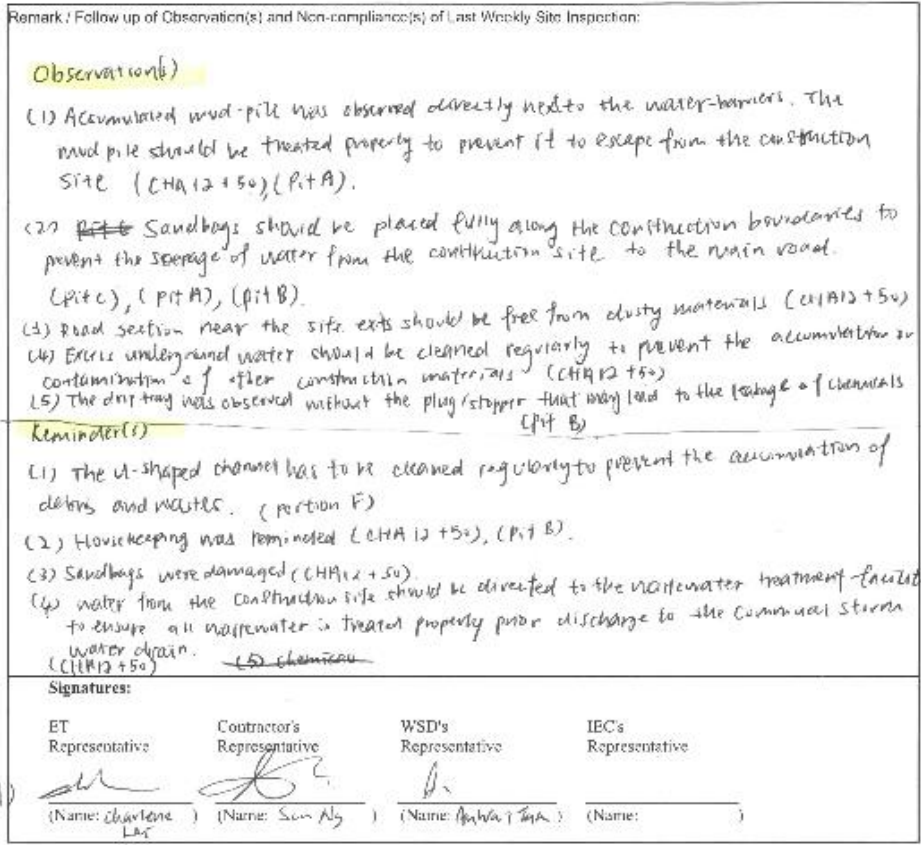 Remark / Follow up of Observation(s) and Non-compliance(s) of Last Weekly Site Inspection:
Observation(s)
(1) Accumulated mud-pile was observed directly next to the water-barriers. The
mud pile should be treated properly to prevent it to escape from the construction
site (CHA 12+50) (Pit A).
(2) Sandbags should be placed fully along the construction boundaries to
prevent the seepage of water from the construction site to the main road.
(pit C), (pit A), (pit B).
(3) Road section near the site exits should be free from dusty materials (CHA12+50)
(4) Excess underground water should be cleaned regularly to prevent the accumulation or
contamination of other construction materials (CHA12+50)
(5) The drip tray was observed without the plug/stopper that may lead to the leakage of chemicals
(Pit B)
Reminder(s)
(1) The U-shaped channel has to be cleaned regularly to prevent the accumulation of
debris and wastes. (portion F)
(2) Housekeeping was reminded (CHA 12+50), (Pit B).
(3) Sandbags were damaged (CHA12+50).
(4) water from the construction site should be directed to the wastewater treatment
to ensure all wastewater is treated properly prior discharge to the communal storm
water drain.
(CHA12+50) (5) chemical
Signatures:
ET Contractor's WSD's IEC's
Representative Representative Representative Representative
(Name: Charlene (Name: Sun Ng ) (Name: ) (Name: )
Lai